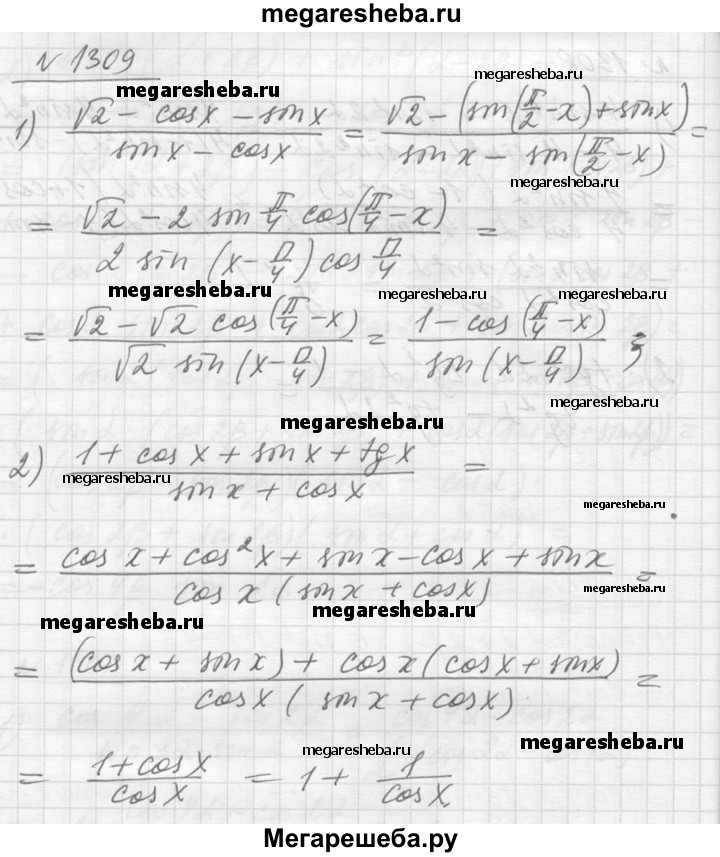 megaresheba.ru
N 1309
megaresheba.ru
megaresheba.ru
1) (√2 - cos x - sin x)/(sin x - cos x) = (√2 - (sin(π/2 - x) + sin x))/(sin x - sin(π/2 - x)) =
megaresheba.ru
= (√2 - 2 sin π/4 cos(π/4 - x))/(2 sin (x - π/4) cos π/4) =
megaresheba.ru megaresheba.ru megaresheba.ru
= (√2 - √2 cos(π/4 - x))/(√2 sin (x - π/4)) = (1 - cos (π/4 - x))/(sin (x - π/4)) ;
megaresheba.ru
megaresheba.ru
2) (1 + cos x + sin x + tg x)/(sin x + cos x) =
megaresheba.ru
megaresheba.ru
= (cos x + cos²x + sin x - cos x + sin x)/(cos x (sin x + cos x)) =
megaresheba.ru
megaresheba.ru
megaresheba.ru
= ((cos x + sin x) + cos x (cos x + sin x))/(cos x (sin x + cos x)) =
megaresheba.ru
megaresheba.ru
= (1 + cos x)/(cos x) = 1 + 1/(cos x)
Мегарешеба.ру